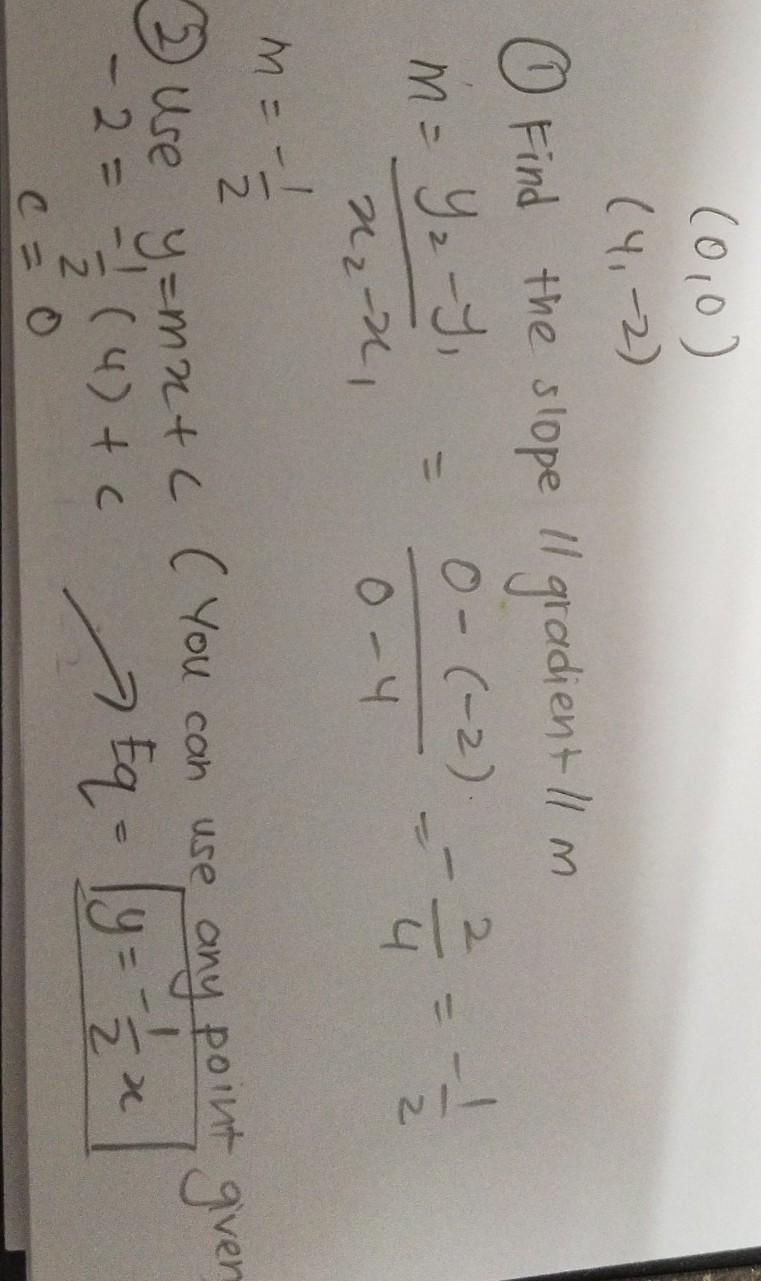 (0,0)
(4,-2)
① Find the slope // gradient // m
m = y₂-y₁/x₂-x₁ = 0-(-2)/0-4 = -2/4 = -1/2
m = -1/2
② Use y=mx+c (You can use any point given
-2 = -1/2 (4) + c
c = 0
→ Eq = y = -1/2 x